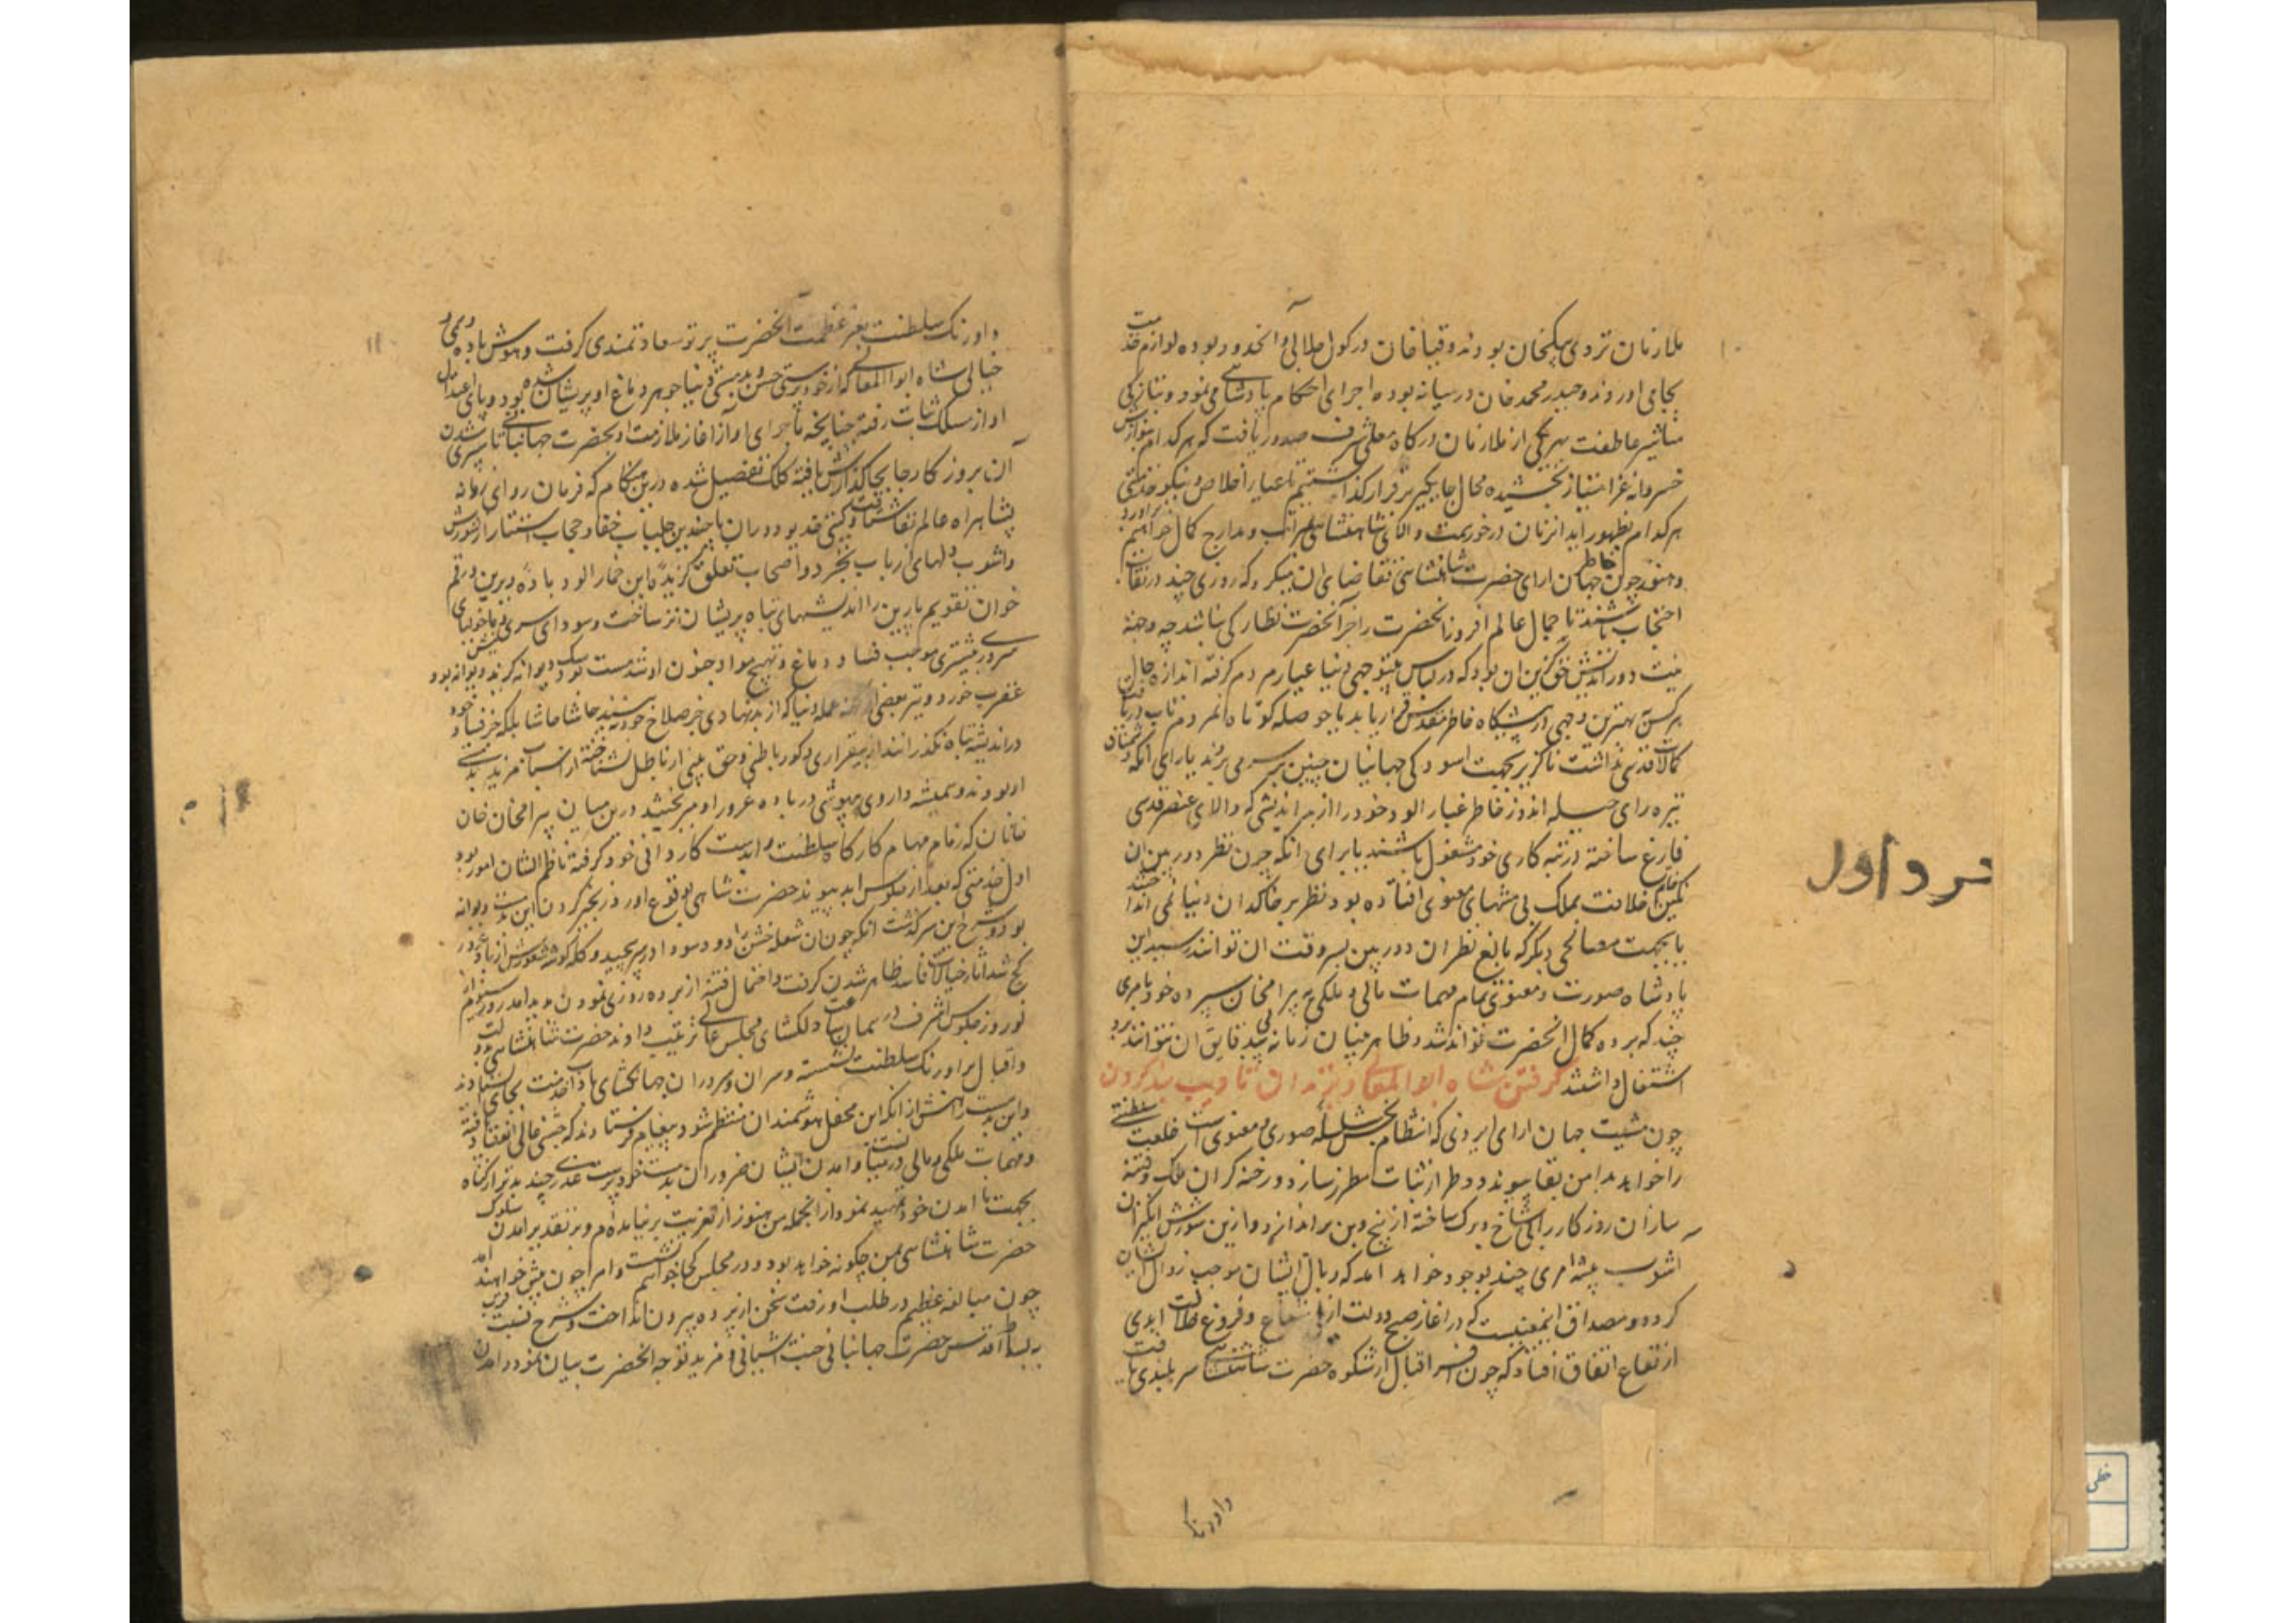 ۱۰
ملازمان تردی بیکخان بودند و قیا خان در کول جلالی و انحدود بوده لوازم خدمت
بجا می اوردند و حیدر محمد خان در بیانه بوده اجرای احکام پادشاهی می نمود و بتازکی
مناشیر عاطفت بهر یکی از ملازمان درکاه معلی شرف صدور یافت که هر کدام بنوازش
خسروانه عز امتیاز بخشیده محال جایکیر برقرار کذاشتیم تا عیار اخلاص و نیکو خدمتی
هر کدام بظهور اید انزمان در خور همت والای شاهنشاهی بمراتب و مدارج کمال خواهیم اورد
و هنوز چون خاطر جهان ارای حضرت شاهنشاهی تقاضای ان میکرد که روزی چند در نقاب
احتجاب باشند تا جمال عالم افروز انحضرت را جز انحضرت نظارکی نباشد چه وجهه
نیت دوراندیش حق کزین ان بود که در لباس بیتوجهی دنیا عیار مردم کرفته اندازه حال
هر کس بهترین وجهی در پیشکاه خاطر مقدس قرار یابد یا حوصله کوتاه مردم تاب دریافت
کمالات قدسی نداشت ناکزیر بجهت اسودکی جهانیان چنین بسر می برند یا برای انکه دشمنان
تیره رای حیله اندوز خاطر غبار الود خود را از هر اندیشی که والای عنصر قدسی
فارغ ساخته در تبه کاری خود مشغول باشند یا برای انکه چون نظر دوربین ان
نکین خاتم خلافت بملک بی منتهای معنوی افتاده بود نظر بر خاکدان دنیا نمی انداختند
یا بجهت مصالحی دیکر که بالغ نظران دوربین بسر وقت ان توانند رسید این
پادشاه صورت و معنوی تمام مهمات مالی و ملکی به بیرامخان سپرده خود بامری
چند که پرده کمال انحضرت تواند شد و ظاهر بینان زمانه پی بدقایق ان نتوانند برد
اشتغال داشتند کرفتن شاه ابوالمعالی و بزندان تادیب بند کردن
چون مشیت جهان ارای ایزدی که انتظام بخش سلسله صوری و معنوی است خلعت سلطنتی
را خواهد بدامن بقا پیوندد و طراز ثبات مطرز سازد و رخنه کران ملک و فتنه
سازان روزکار را بی شاخ و برک ساخته از بیخ و بن براندازد و ازین شورش انکیزان
اشوب پیشه امری چند بوجود خواهد امد که وبال ایشان موجب زوال ایشان
کردد و مصداق اینمعنیست که در اغاز صبح دولت ازلی شعاع و فروغ جلالت ابدی
ارتفاع اتفاق افتاد که چون افسر اقبال از شکوه حضرت شاهنشاهی سربلندی یافت
داورنک
فرد اول
خطی
۱۱
داورنک سلطنت بعز عظمت انحضرت پرتو سعادتمندی کرفت و هوش باده
خیالی شاه ابوالمعالی که از خودپرستی حسن و بدمستی دنیا جوهر دماغ او پریشان شده بود و پای اعتدال
او از مسلک ثبات رفته چنانچه ماجرای او از اغاز ملازمت او بحضرت جهانبانی تا سپری شدن
آن بروز کار جابجا کذارش یافته کلک تفصیل شده درین هنکام که فرمان روای زمانه
بشاهراه عالم تقا شتافت و کیتی خدیو دوران با چندین جلباب خفا و حجاب استتار از شورش
و اشوب دلهای ارباب تجرد و اصحاب تعلق کزیده این خمار الود باده دیرین و رقم
خوان تقویم پارین را اندیشهای تباه پریشان تر ساخت و سودای سری و ماخولیای
سروری بیشتری موجب فساد دماغ و تهییج مواد جنون او شد مست بود بنک کشیدن دیوانه کردید دیوانه بود
عقرب خورد و نیز بعضی از فتنه عمله دنیا که از بدنهادی خیر صلاح خود نه بینند حاشا حاشا بلکه خر فساد خود
در اندیشه تباه نکذرانند از بیقراری و کور باطنی و حق بینی از باطل نشناخته از اسباب مزید بدمستی
او بودند و همیشه داروی بیهوشی در باده غرور او میریخشید درین میان بیرامخان خان
خانان که زمام مهام کارکاه سلطنت را بدست کاردانی خود کرفته ناظم الشان امور بود
اول خدمتی که بعد از جلوس ابد پیوند حضرت شاهی بوقوع اورد زنجیر کردن این بدمست دیوانه
بود و شرح این سرکذشت انکه چون ان شعله خشن را دود سودا در سر پیچید و کله کوشه شعورش از باد غرور
کج شد اثار خیالات فاسد ظاهر شدن کرفت و احتمال فتنه از پرده روزی نمودن بودید امد روز سیوم از
نوروز جلوس اشرف در همان ساعت دلکشای مجلس عالی ترتیب دادند حضرت شاهنشاهی بدولت
و اقبال بر اورنک سلطنت نشسته و سران و سروران جهانکشای باداب خدمت بجای ایستادند
و این بدمست را پیش از انکه این محفل هوشمندان منتظم شود پیغام فرستادند که جشنی عالی انعقاد یافته
و مهمات ملکی و مالی در میانست و امدن ایشان ضرور ان بدمست خودپرست عذری چند بدتر از کناه
بجهت نا امدن خود تمهید نمود از انجمله من هنوز از تعزیت برنیامده ام و بر تقدیر امدن سلوک
حضرت شاهنشاهی بمن چکونه خواهد بود و در مجلس کجا خواهم نشست و امرا چون پیش خواهند امد
چون مبالغه عظیم در طلب او رفت سخن از پرده بیرون انداخت و شرح نسبت قربی
ببساط اقدس حضرت جهانبانی جنت اشیانی و مزید توجه انحضرت بیان نمود در امدن